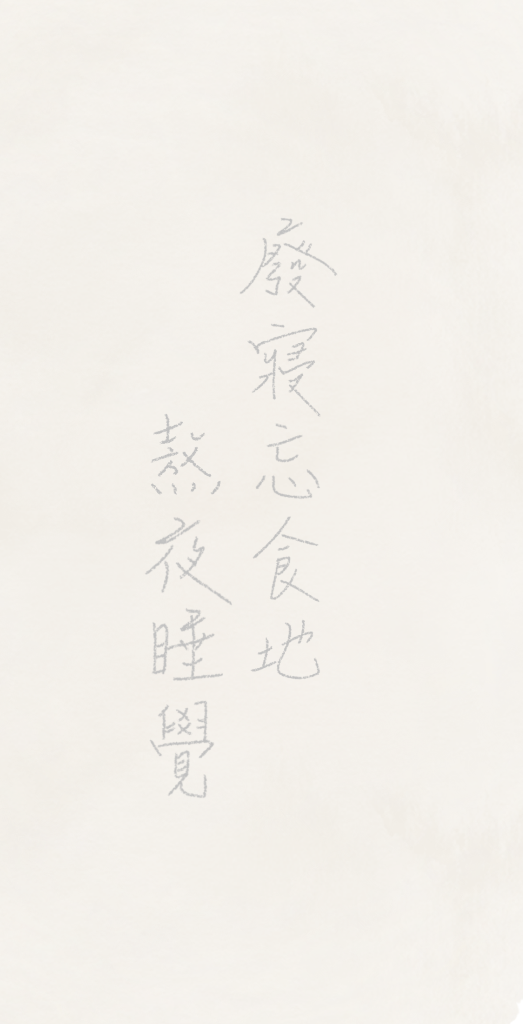 廢寢忘食地
熬夜睡覺